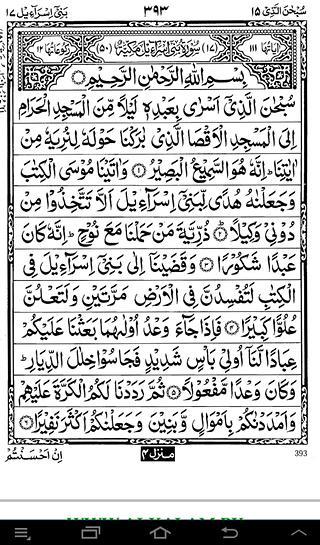 سُبْحٰنَ الَّذِیْۤ ۱۵
۳۹۳
بَنِیْۤ اِسْرَآءِیْل ۱۷
اٰیَاتُهَا ۱۱۱
(۱۷) سُوْرَةُ بَنِیْۤ اِسْرَآءِیْلَ مَكِّیَّةٌ (۵۰)
رُكُوْعَاتُهَا ۱۲
بِسْمِ اللّٰهِ الرَّحْمٰنِ الرَّحِیْمِ
سُبْحٰنَ الَّذِیْۤ اَسْرٰی بِعَبْدِهٖ لَیْلًا مِّنَ الْمَسْجِدِ الْحَرَامِ
اِلَی الْمَسْجِدِ الْاَقْصَا الَّذِیْ بٰرَكْنَا حَوْلَهٗ لِنُرِیَهٗ مِنْ
اٰیٰتِنَا ؕ اِنَّهٗ هُوَ السَّمِیْعُ الْبَصِیْرُ ۝۱ وَ اٰتَیْنَا مُوْسَی الْكِتٰبَ
وَ جَعَلْنٰهُ هُدًی لِّبَنِیْۤ اِسْرَآءِیْلَ اَلَّا تَتَّخِذُوْا مِنْ
دُوْنِیْ وَكِیْلًا ۝۲ ذُرِّیَّةَ مَنْ حَمَلْنَا مَعَ نُوْحٍ ؕ اِنَّهٗ كَانَ
عَبْدًا شَكُوْرًا ۝۳ وَ قَضَیْنَاۤ اِلٰی بَنِیْۤ اِسْرَآءِیْلَ فِی
الْكِتٰبِ لَتُفْسِدُنَّ فِی الْاَرْضِ مَرَّتَیْنِ وَ لَتَعْلُنَّ
عُلُوًّا كَبِیْرًا ۝۴ فَاِذَا جَآءَ وَعْدُ اُوْلٰىهُمَا بَعَثْنَا عَلَیْكُمْ
عِبَادًا لَّنَاۤ اُولِیْ بَاْسٍ شَدِیْدٍ فَجَاسُوْا خِلٰلَ الدِّیَارِ ؕ
وَ كَانَ وَعْدًا مَّفْعُوْلًا ۝۵ ثُمَّ رَدَدْنَا لَكُمُ الْكَرَّةَ عَلَیْهِمْ
وَ اَمْدَدْنٰكُمْ بِاَمْوَالٍ وَّ بَنِیْنَ وَ جَعَلْنٰكُمْ اَكْثَرَ نَفِیْرًا ۝۶
اِنْ اَحْسَنْتُمْ
منزل ۴
393